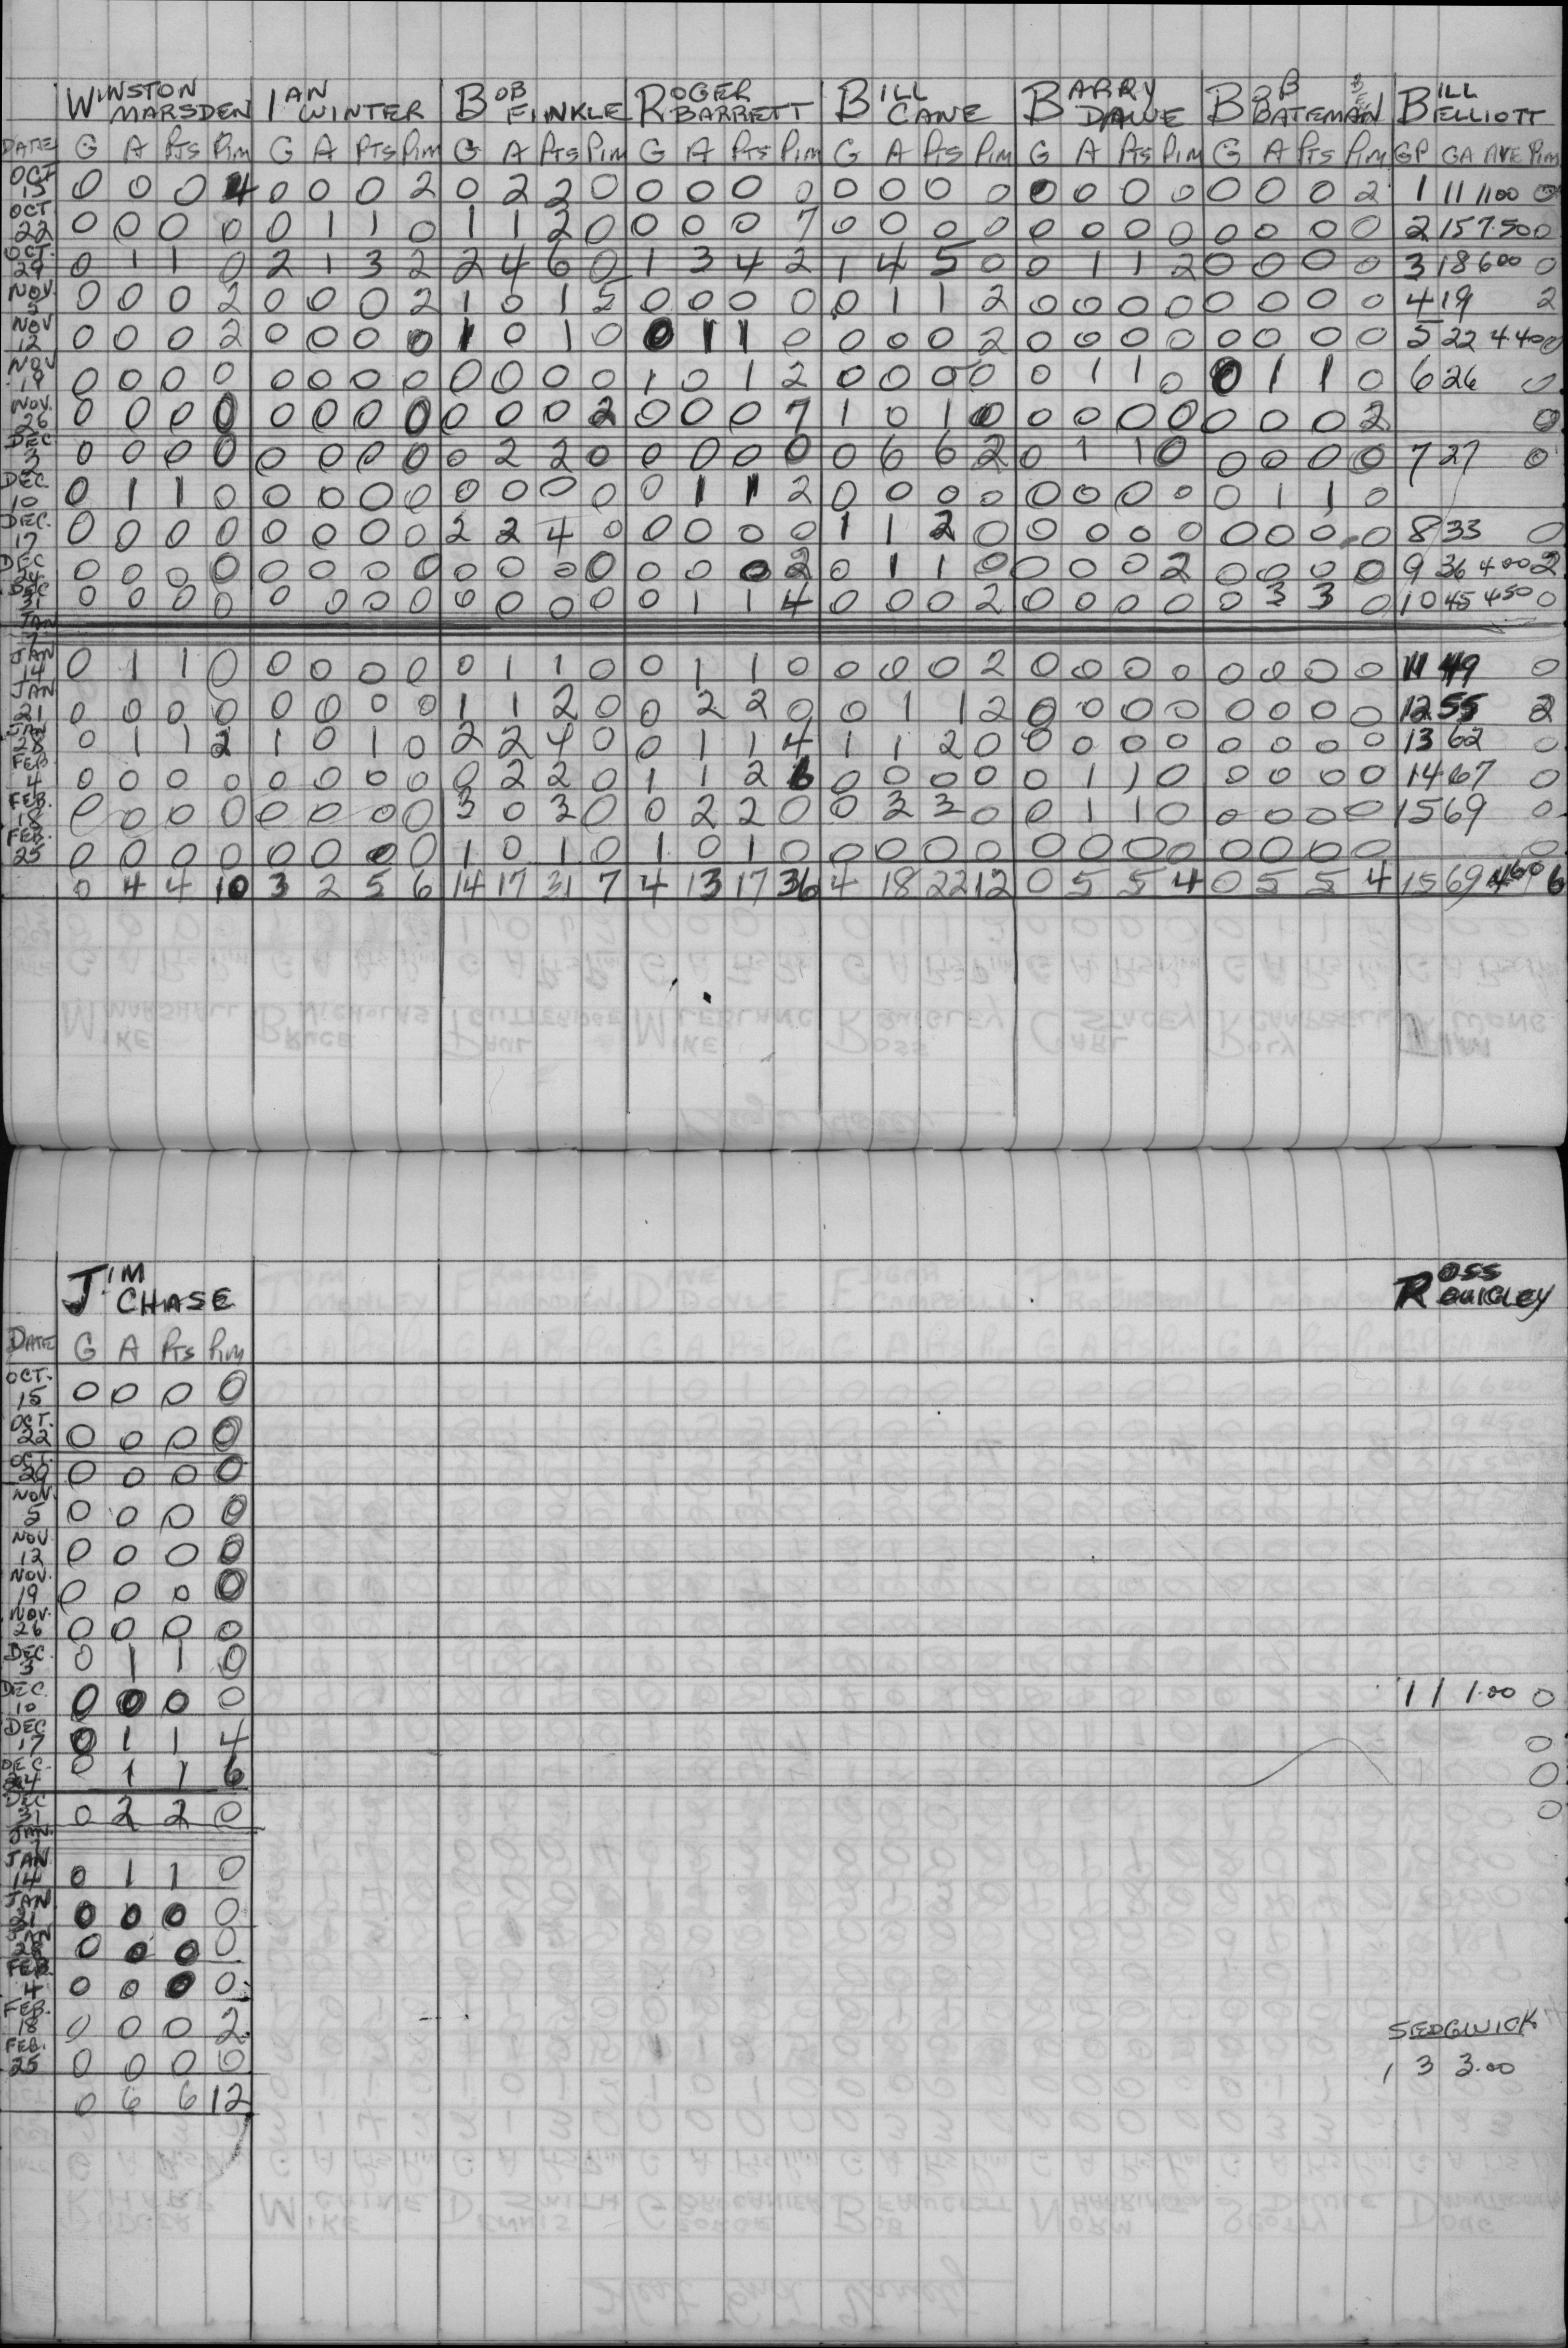 WINSTON MARSDEN IAN WINTER BOB FINKLE ROGER BARRETT BILL CANE BARRY DAWE BOB BATEMAN BILL ELLIOTT
DATE G A PTS PIM G A PTS PIM G A PTS PIM G A PTS PIM G A PTS PIM G A PTS PIM G A PTS PIM GP GA AVE PIM
OCT 15 0 0 0 4 0 0 0 2 0 2 2 0 0 0 0 0 0 0 0 0 0 0 0 0 0 0 0 2 1 11 11.00 0
OCT 22 0 0 0 0 0 1 1 0 1 1 2 0 0 0 0 7 0 0 0 0 0 0 0 0 0 0 0 0 2 15 7.50 0
OCT. 29 0 1 1 0 2 1 3 2 2 4 6 0 1 3 4 2 1 4 5 0 0 1 1 2 0 0 0 0 3 18 6.00 0
NOV. 5 0 0 0 2 0 0 0 2 1 0 1 5 0 0 0 0 0 1 1 2 0 0 0 0 0 0 0 0 4 19 2
NOV 12 0 0 0 2 0 0 0 0 1 0 1 0 0 1 1 0 0 0 0 2 0 0 0 0 0 0 0 0 5 22 4.40 0
NOV 19 0 0 0 0 0 0 0 0 0 0 0 0 1 0 1 2 0 0 0 0 0 1 1 0 0 1 1 0 6 26 0
NOV. 26 0 0 0 0 0 0 0 0 0 0 0 2 0 0 0 7 1 0 1 0 0 0 0 0 0 0 0 2 0
DEC 3 0 0 0 0 0 0 0 0 0 2 2 0 0 0 0 0 0 6 6 2 0 1 1 0 0 0 0 0 7 27 0
DEC. 10 0 1 1 0 0 0 0 0 0 0 0 0 0 1 1 2 0 0 0 0 0 0 0 0 0 1 1 0
DEC. 17 0 0 0 0 0 0 0 0 2 2 4 0 0 0 0 0 1 1 2 0 0 0 0 0 0 0 0 0 8 33 0
DEC 24 0 0 0 0 0 0 0 0 0 0 0 0 0 0 0 2 0 1 1 0 0 0 0 2 0 0 0 0 9 36 4.00 2
DEC 31 0 0 0 0 0 0 0 0 0 0 0 0 0 1 1 4 0 0 0 2 0 0 0 0 0 3 3 0 10 45 4.50 0
JAN 7
JAN 14 0 1 1 0 0 0 0 0 0 1 1 0 0 1 1 0 0 0 0 2 0 0 0 0 0 0 0 0 11 49 0
JAN 21 0 0 0 0 0 0 0 0 1 1 2 0 0 2 2 0 0 1 1 2 0 0 0 0 0 0 0 0 12 55 2
JAN 28 0 1 1 2 1 0 1 0 2 2 4 0 0 1 1 4 1 1 2 0 0 0 0 0 0 0 0 0 13 62 0
FEB 4 0 0 0 0 0 0 0 0 0 2 2 0 1 1 2 6 0 0 0 0 0 1 1 0 0 0 0 0 14 67 0
FEB. 18 0 0 0 0 0 0 0 0 3 0 3 0 0 2 2 0 0 3 3 0 0 1 1 0 0 0 0 0 15 69 0
FEB. 25 0 0 0 0 0 0 0 0 1 0 1 0 1 0 1 0 0 0 0 0 0 0 0 0 0 0 0 0 0
0 4 4 10 3 2 5 6 14 17 31 7 4 13 17 36 4 18 22 12 0 5 5 4 0 5 5 4 15 69 4.60 6
JIM CHASE ROSS QUIGLEY
DATE G A PTS PIM
OCT. 15 0 0 0 0
OCT. 22 0 0 0 0
OCT. 29 0 0 0 0
NOV. 5 0 0 0 0
NOV 12 0 0 0 0
NOV. 19 0 0 0 0
NOV. 26 0 0 0 0
DEC. 3 0 1 1 0
DEC. 10 0 0 0 0 1 1 1.00 0
DEC 17 0 1 1 4 0
DEC. 24 0 1 1 6 0
DEC 31 0 2 2 0 0
JAN. 7
JAN 14 0 1 1 0
JAN 21 0 0 0 0
JAN 28 0 0 0 0
FEB. 4 0 0 0 0
FEB. 18 0 0 0 2 SEDGWICK
FEB. 25 0 0 0 0 1 3 3.00
0 6 6 12